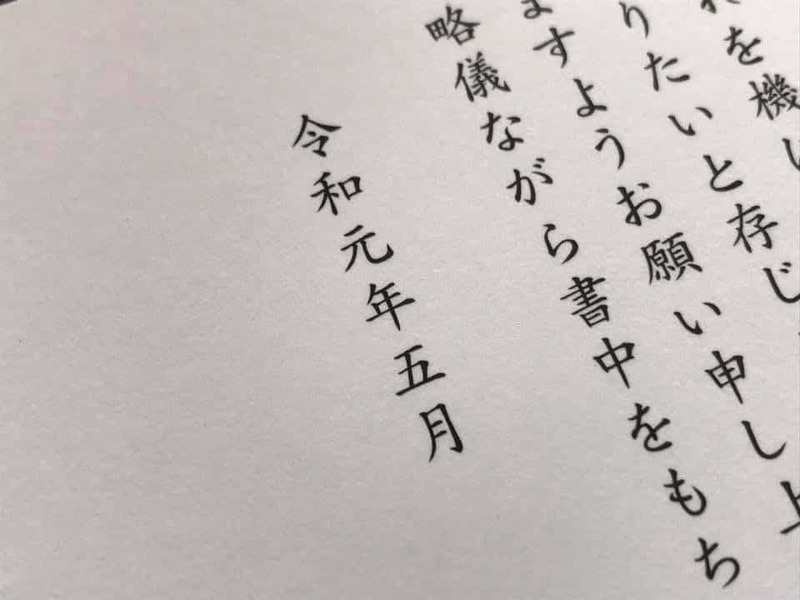 を機
りたいと存じ
ますようお願い申し上
略儀ながら書中をもち
令和元年五月